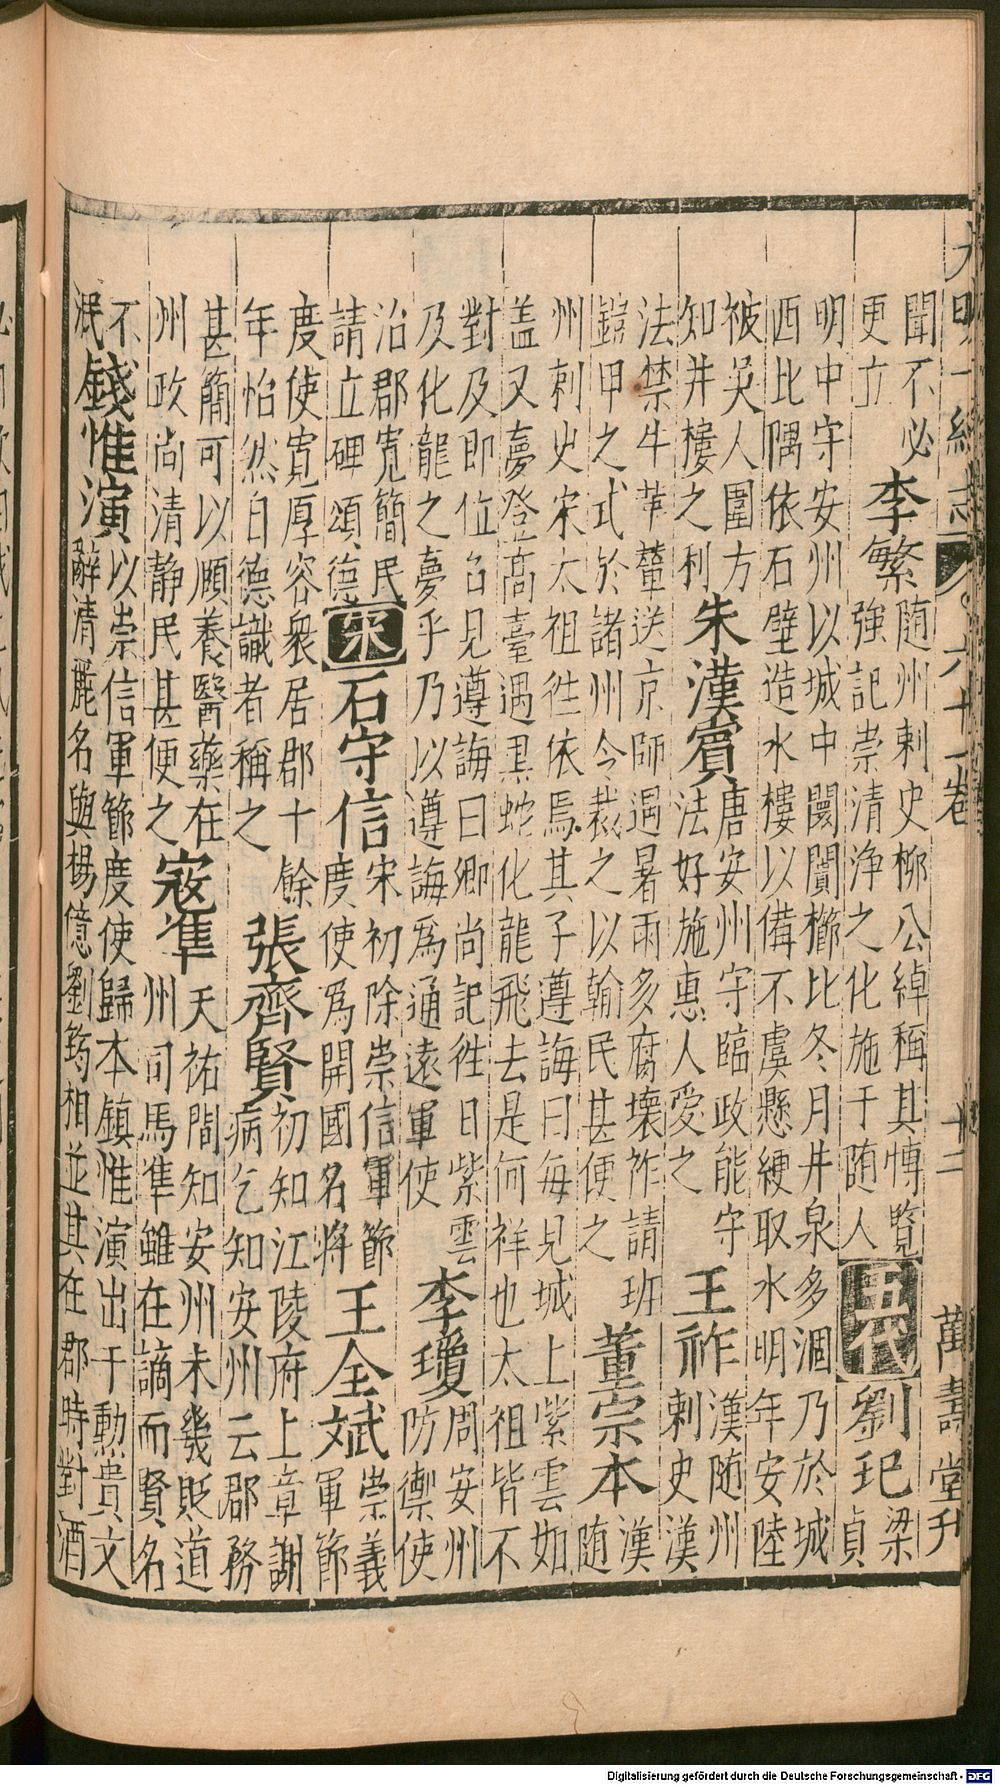 大明一統志 卷六十一卷 十二 萬壽堂刋
聞不必
更立
李繁
随州刺史柳公綽稱其博覽
強記崇清浄之化施于随人
五代
劉玘
梁
貞
明中守安州以城中闤闠櫛比冬月井泉多涸乃於城
西比隅依石壁造水樓以備不虞懸綆取水明年安陸
被吳人圍方
知井樓之利
朱漢賓
唐安州守臨政能守
法好施惠人愛之
王祚
漢随州
刺史漢
法禁牛革輦送京師遇暑雨多腐壊祚請班
鎧甲之式於諸州令裁之以輸民甚便之
董宗本
漢
随
州刺史宋太祖徃依焉其子遵誨曰每見城上紫雲如
盖又夢登高臺遇黒蛇化龍飛去是何祥也太祖皆不
對及即位召見遵誨曰卿尚記徃日紫雲
及化龍之夢乎乃以遵誨爲通遠軍使
李瓊
周安州
防禦使
治郡寛簡民
請立碑頌德
宋
石守信
宋初除崇信軍節
度使爲開國名将
王全斌
崇義
軍節
度使寛厚容衆居郡十餘
年怡然自德識者稱之
張齊賢
初知江陵府上章謝
病乞知安州云郡務
甚簡可以頤養醫藥在
州政尚清静民甚便之
寇凖
天祐間知安州未幾貶道
州司馬凖雖在謫而賢名
不
泯
錢惟演
以崇信軍節度使歸本鎮惟演出于勳貴文
辭清麗名與楊億劉筠相並其在郡時對酒
Digitalisierung gefördert durch die Deutsche Forschungsgemeinschaft - DFG